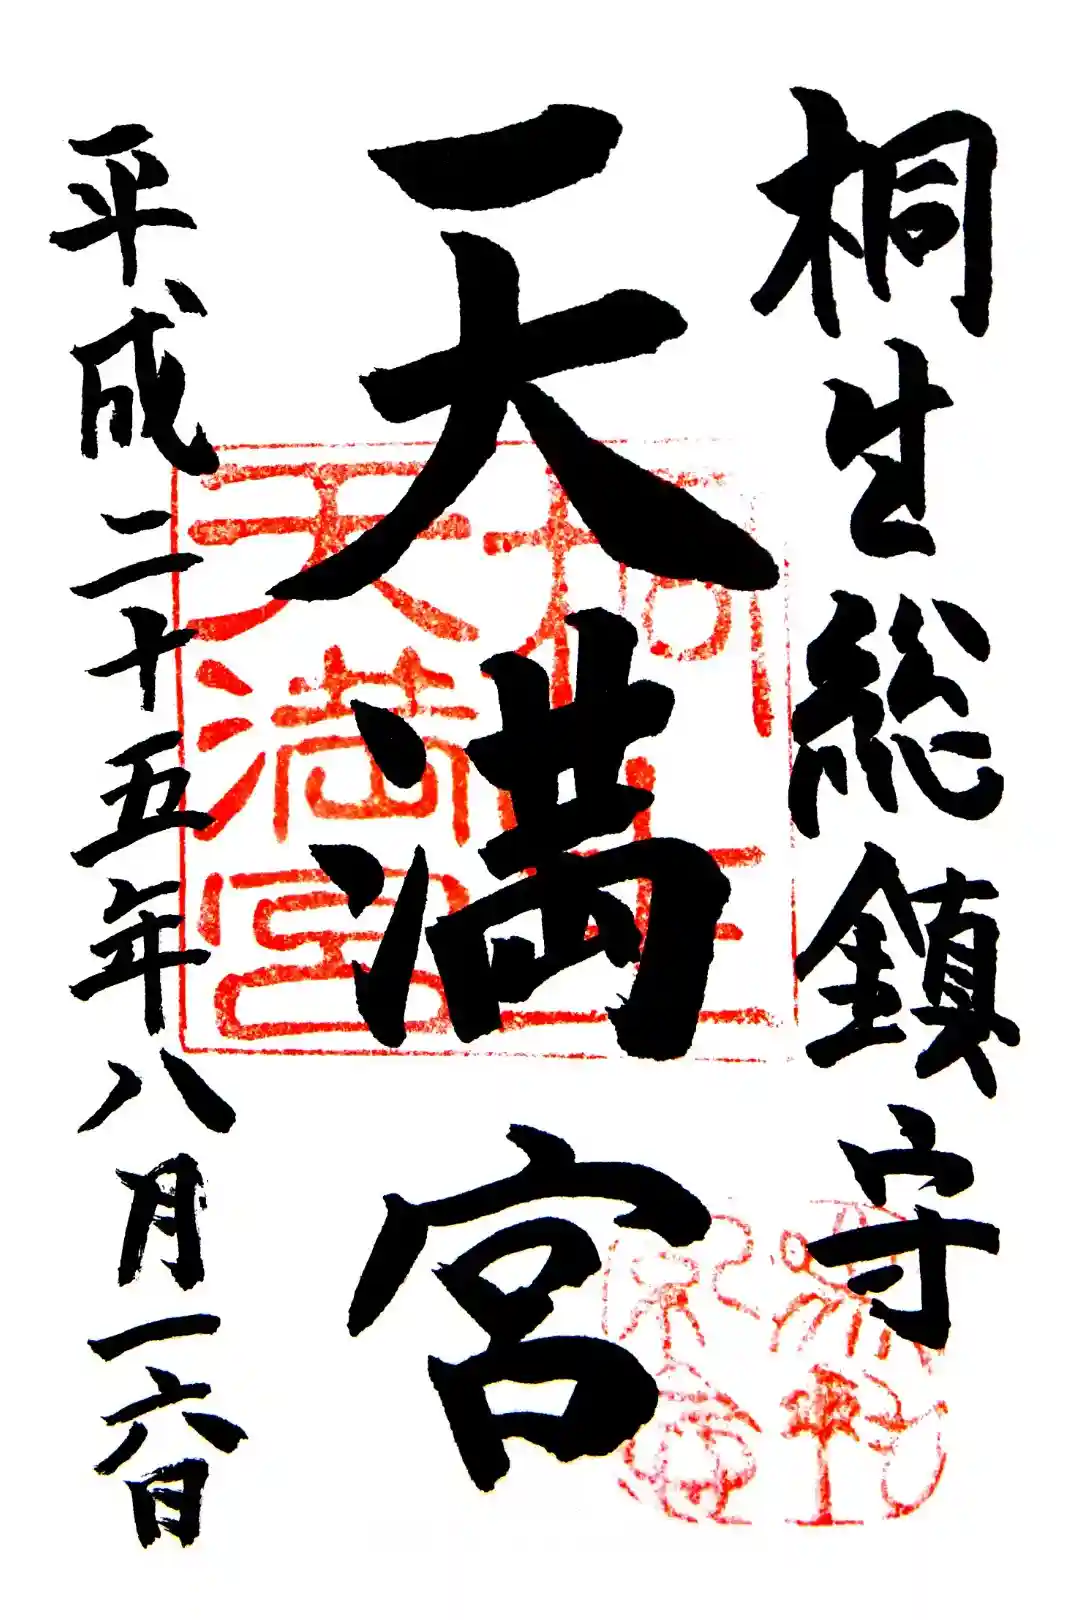 桐生総鎮守
天満宮
平成二十五年八月一六日
桐生
天満宮